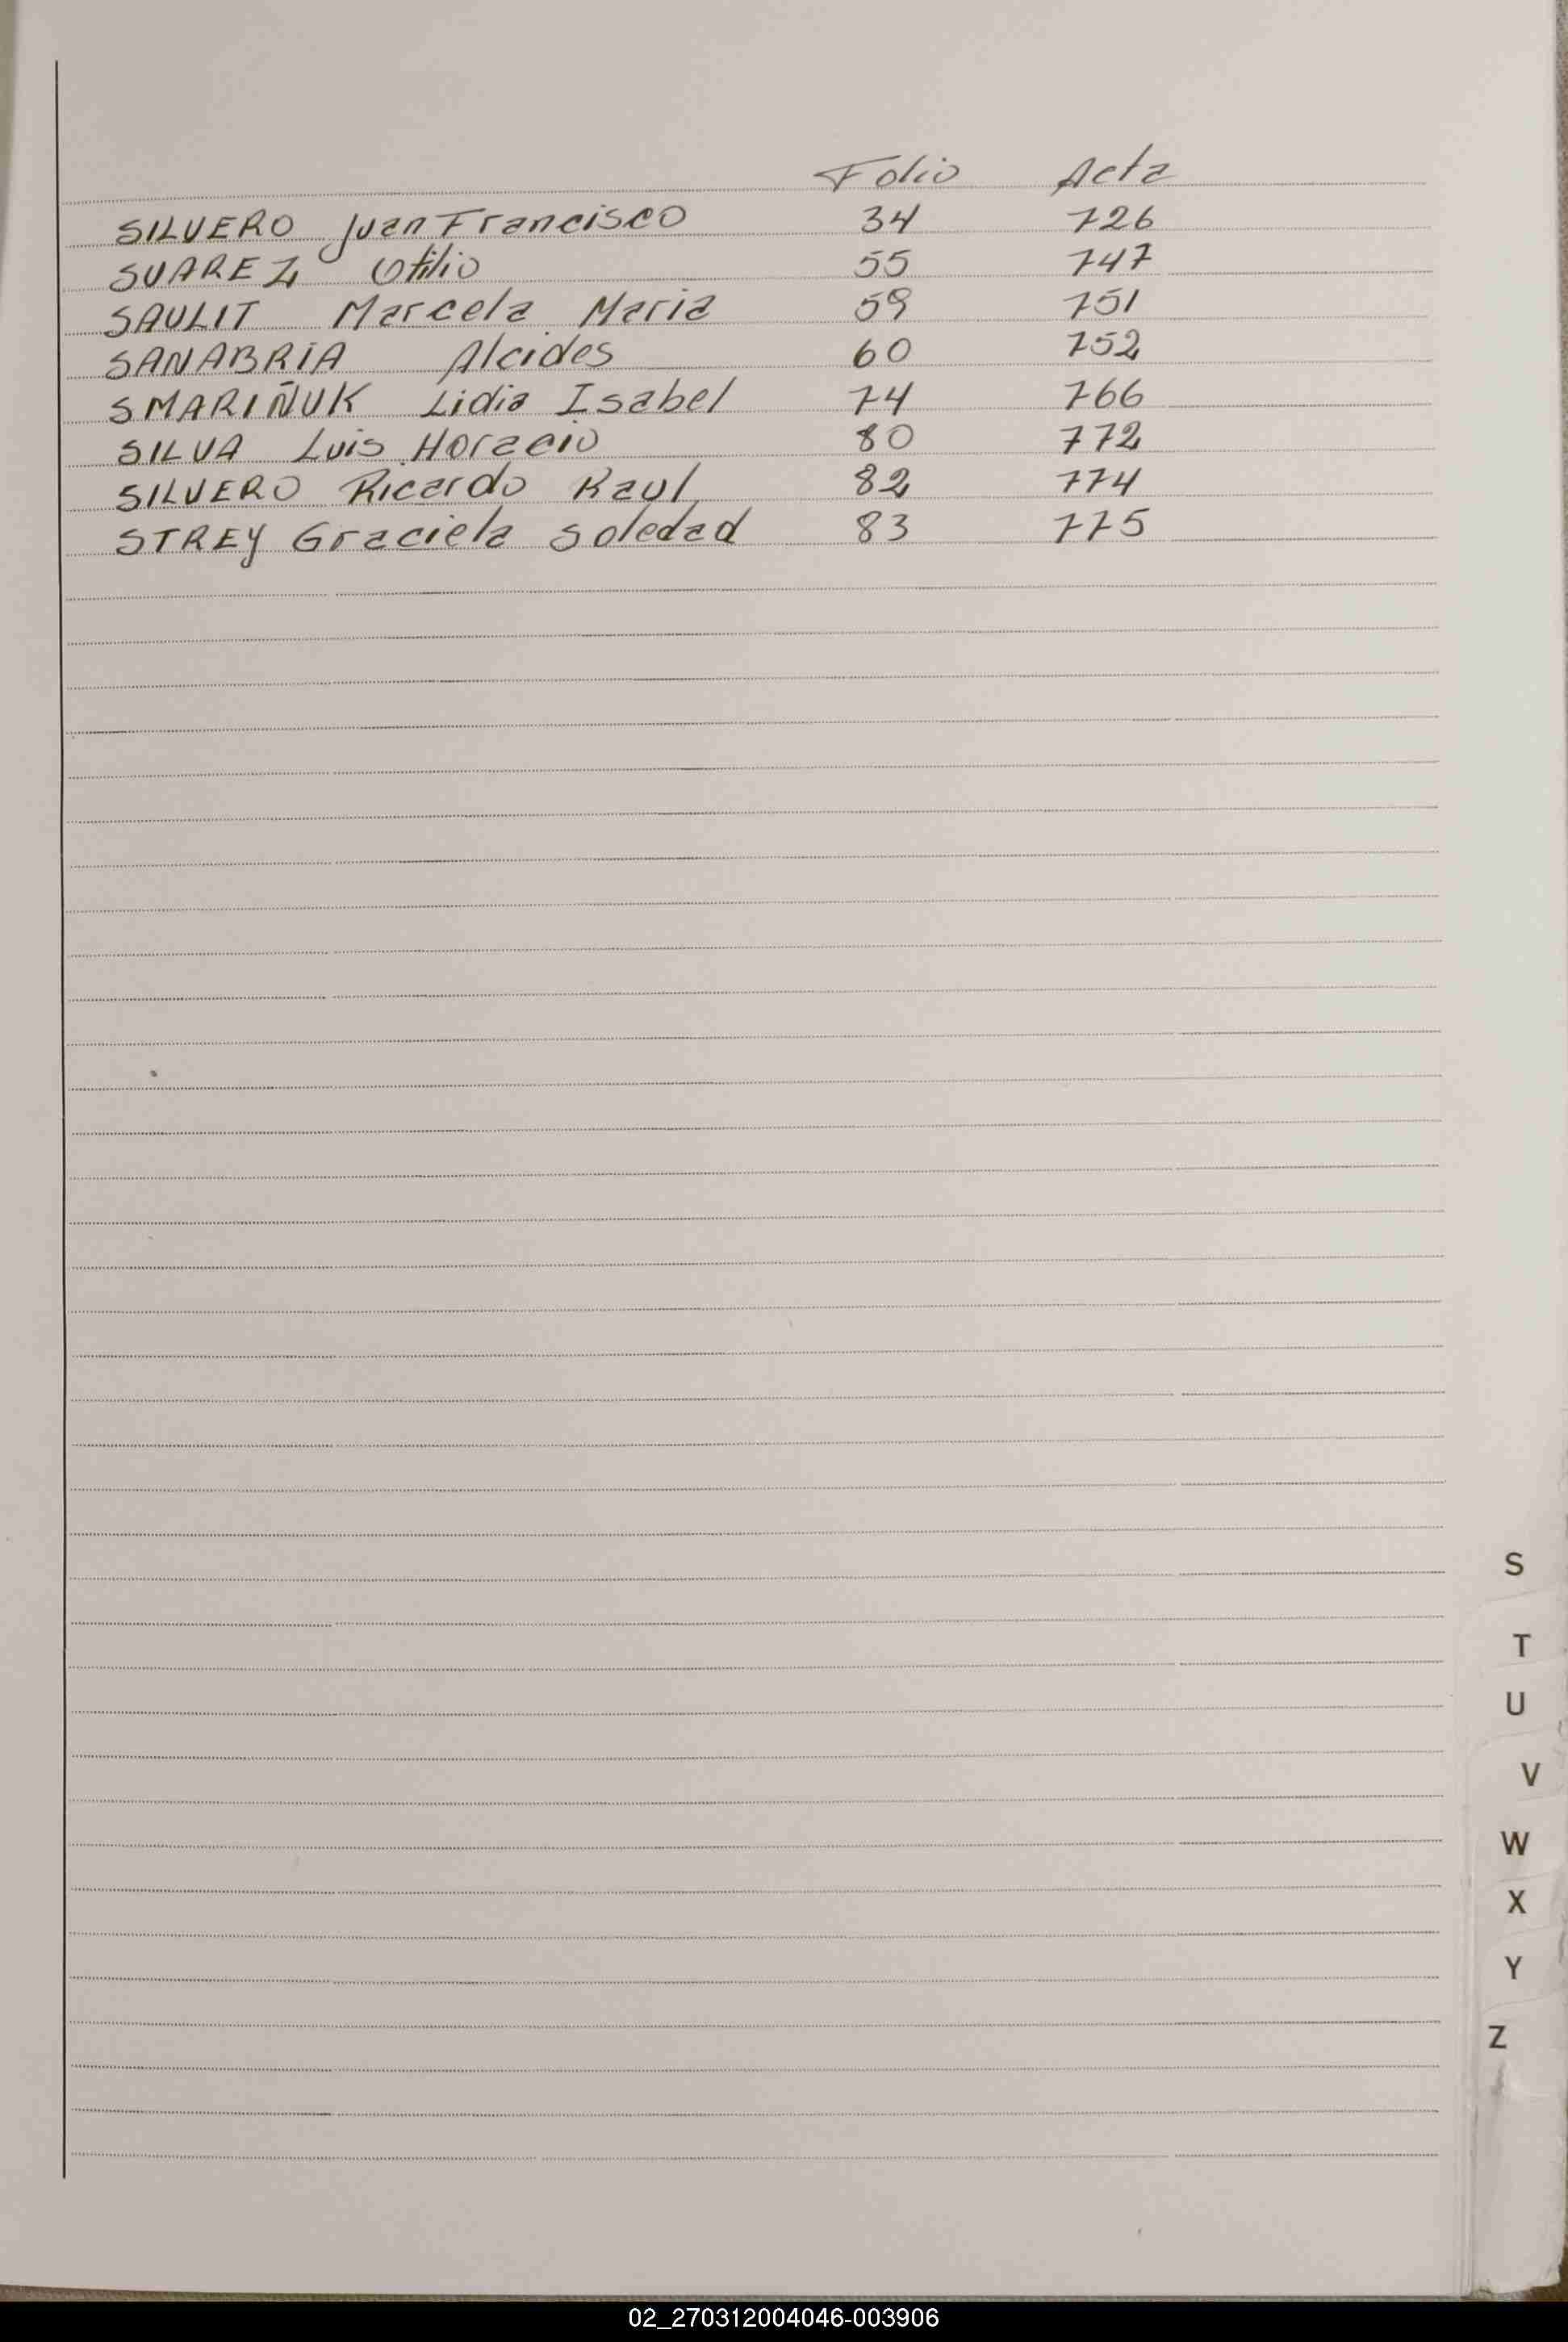 Folio Acta
SILVERO Juan Francisco 34 726
SUAREZ Otilio 55 747
SAULIT Marcela Maria 59 751
SANABRIA Alcides 60 752
SMARIÑUK Lidia Isabel 74 766
SILVA Luis Horacio 80 772
SILVERO Ricardo Raul 82 774
STREY Graciela Soledad 83 775
S
T
U
V
W
X
Y
Z
02_270312004046-003906